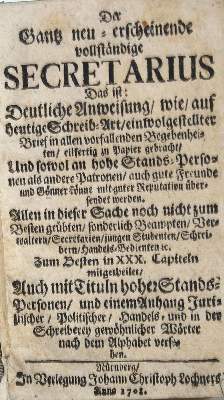 Der
Gantz neu-erscheinende
vollständige
SECRETARIUS
Das ist:
Deutliche Anweisung/ wie/ auf
heutige Schreib-Art/ ein wolgestellter
Brief in allen vorfallenden Begebenhei-
ten/ eilfertig zu Papier gebracht/
Und sowol an hohe Stands-Perso-
nen als andere Patronen/ auch gute Freunde
und Gönner könne mit guter Reputation über-
sendet werden.
Allen in dieser Sache noch nicht zum
Besten geübten/ sonderlich Beampten/ Ver-
waltern/ Secretarien/ jungen Studenten/ Schrei-
bern/ Handels-Bedienten ec.
Zum Besten in XXX. Capiteln
mitgetheilet/
Auch mit Tituln hoher Stands-
Personen/ und einem Anhang Juri-
stischer/ Politischer/ Handels- und in der
Schreiberey gewöhnlicher Wörter
nach dem Alphabet verse-
hen.
Nürnberg/
In Verlegung Johann Christoph Lochners/
Anno 1701.